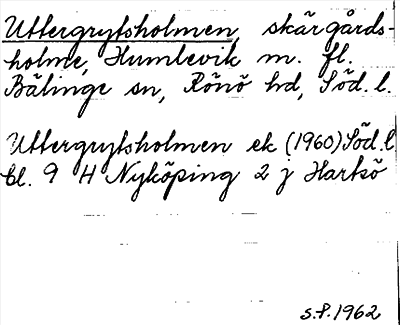 Uttergrytsholmen, skärgårds-
holme, Humlevik m. fl.
Bälinge sn, Rönö hd, Söd. l.
Uttergrytsholmen ek (1960) Söd. l.
bl. 9 H Nyköping 2 j Hartsö
S.P. 1962